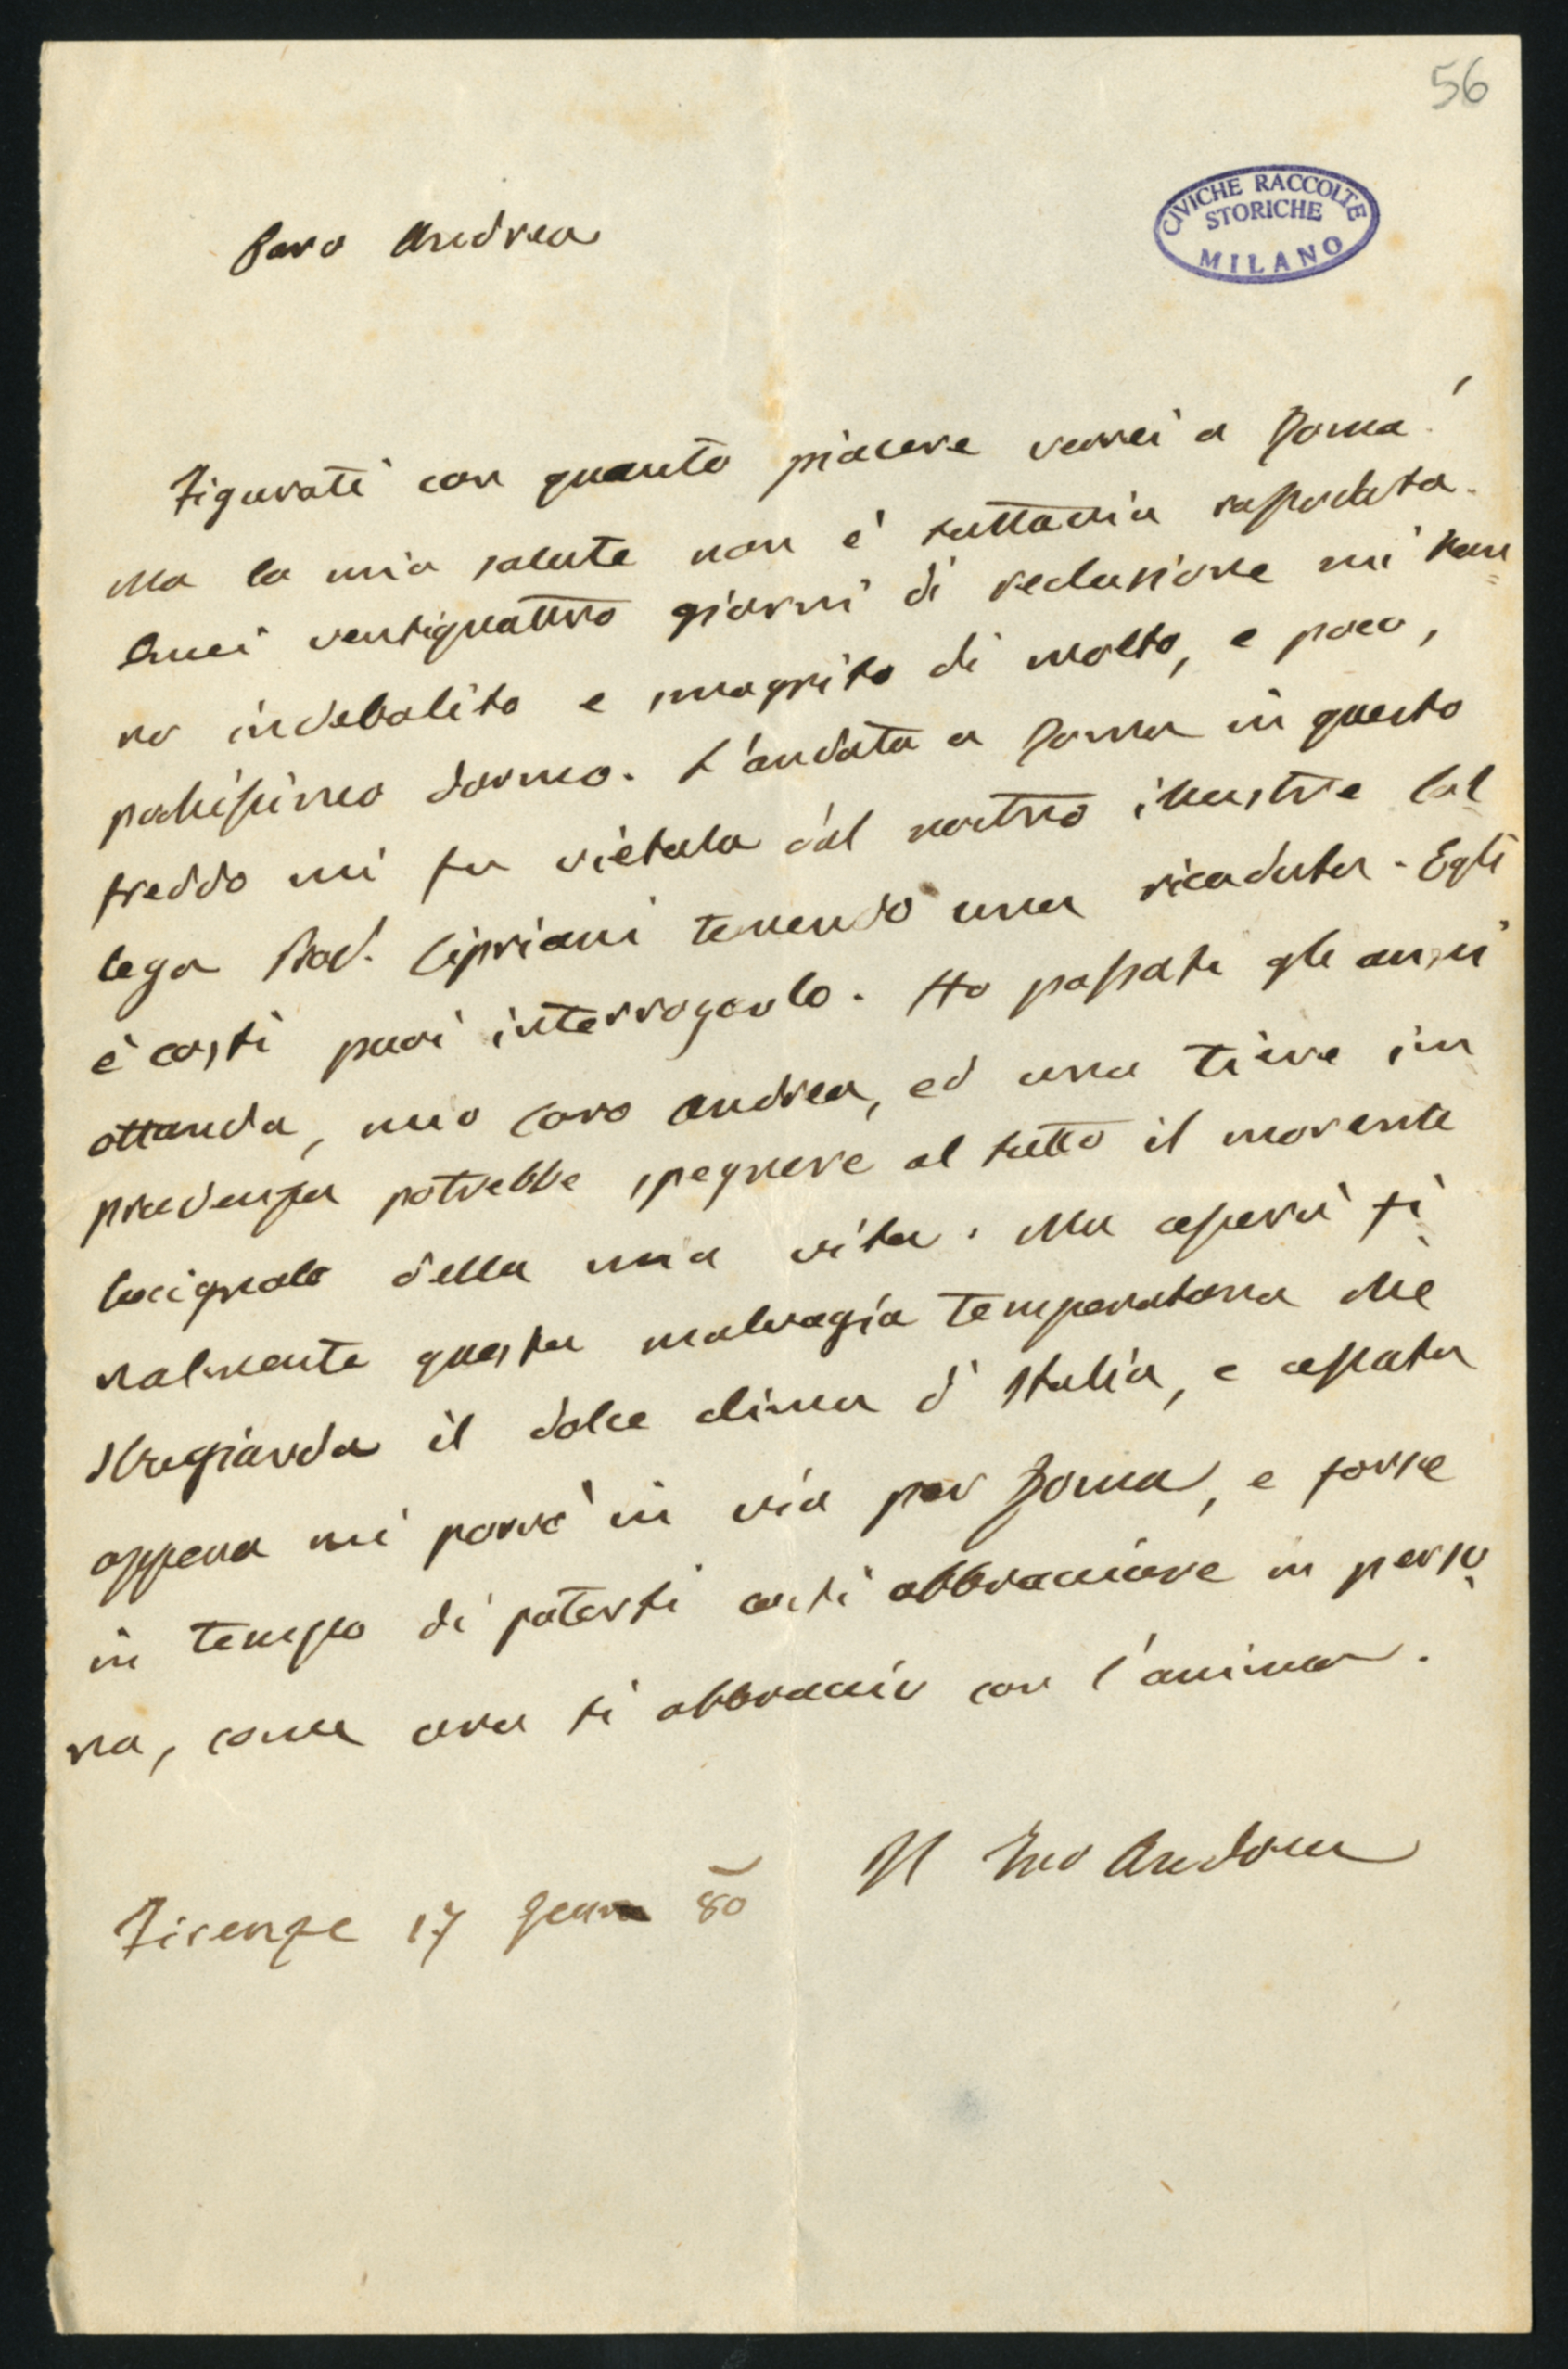 56
CIVICHE RACCOLTE
STORICHE
MILANO
Caro Andrea
Figurati con quanto piacere verrei a Roma!
Ma la mia salute non è tuttavia rassodata.
Quei ventiquattro giorni di reclusione mi han=
no indebolito e smagrito di molto, e poco,
pochissimo dormo. L'andata a Roma in questo
freddo mi fu vietata dal nostro illustre Col
lega Prof. Cipriani temendo una ricaduta. Egli
è costì puoi interrogarlo. Ho passati gli anni
ottanda, mio caro Andrea, ed una lieve im
prudenza potrebbe spegnere al tutto il morente
lucignolo della mia vita. Ma cesserà fi
nalmente questa malvagia temperatura che
sbugiarda il dolce clima d'Italia, e cessata
appena mi porrò in via per Roma, e forse
in tempo di poterti costì abbracciare in perso
na, come ora ti abbraccio con l'anima.
Il Tuo
Firenze 17 Genn 80